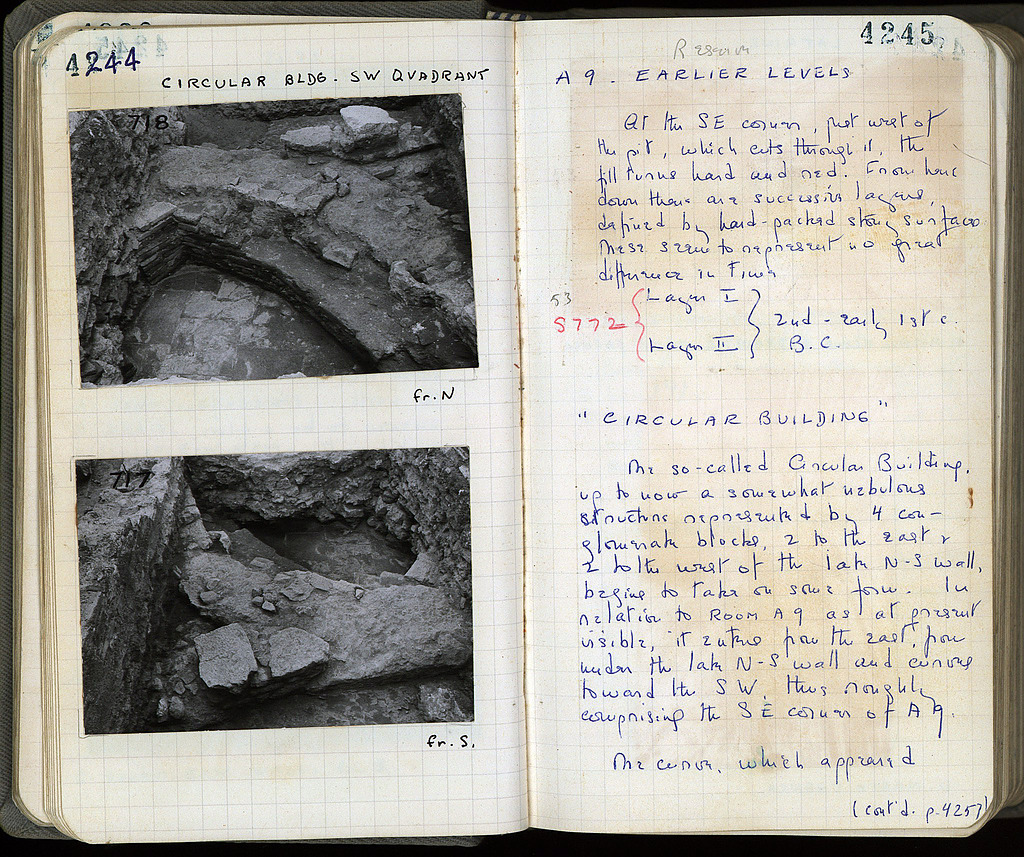 4244
CIRCULAR BLDG. SW QUADRANT
718
fr. N
717
fr. S.
4245
A 9. EARLIER LEVELS
At the SE corner, just west of
the pit, which cuts through it, the
fill turns hard and red. From here
down there are successive layers,
defined by hard-packed stony surfaces
These seem to represent no great
difference in time
53
S772
Layer I
Layer II
2nd - early 1st c.
B.C.
"CIRCULAR BUILDING"
The so-called Circular Building,
up to now a somewhat nebulous
structure represented by 4 con-
glomerate blocks, 2 to the east &
2 to the west of the late N-S wall,
begins to take on some form. In
relation to ROOM A 9 as at present
visible, it enters from the east, from
under the late N-S wall and curves
toward the SW, thus roughly
comprising the SE corner of A 9.
The curve, which appeared
(cont'd. p. 4257)